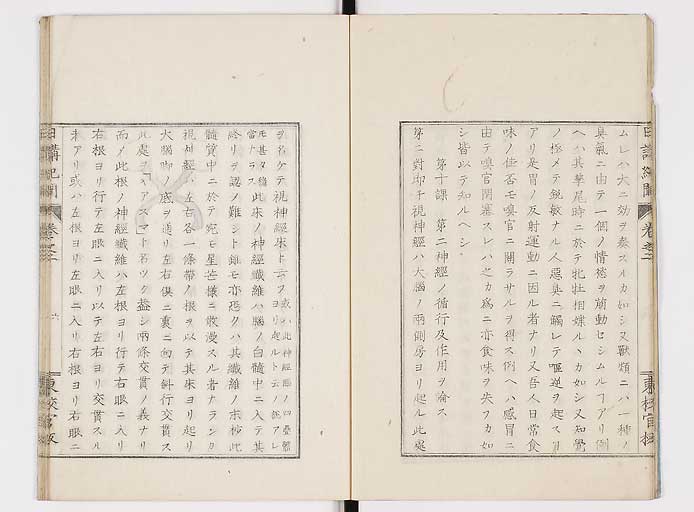 ムレハ大ニ効ヲ奏スルカ如シ又獣類ニハ一種ノ
臭氣ニ由テ一個ノ情慾ヲ萠動セシムルヿアリ例
ヘハ其孳尾時ニ於テ牝牡相嫖ルヽカ如シ又知覺
ノ極メテ鋭敏ナル人惡臭ニ觸レテ嘔逆ヲ起スヿ
アリ是胃ノ反射運動ニ因ル者ナリ又吾人日常食
味ノ佳否モ嗅官ニ關ラサルヲ得ス例ヘハ感冒ニ
由テ嗅官閉塞スレハ之カ爲ニ亦食味ヲ失フカ如
シ皆以テ知ルヘシ
第十課 第二神經ノ循行及作用ヲ論ス
第二對即チ視神經ハ大腦ノ兩側房ヨリ起ル此處
ヲ名ケテ視神經床ト云フ或ハ此神經腦ノ四疊體
ヨリ起ルト云ノ説アレ
當ナラス此床ノ神經纖維ハ腦ノ白髓中ニ入テ其
終リヲ認ノ難シト雖モ亦恐クハ其纖維ノ末梢此
髓質中ニ於テ宛モ星芒樣ニ散漫スル者ナランカ
視神經ハ左右各一條帶ノ根ヲ以テ其床ヨリ起リ
大腦脚ノ底ヲ通リ左右倶ニ裏ニ向テ斜行交貫ス
此處ヲ「キアスマ」ト名ツク蓋シ兩條交貫ノ義ナリ
而メ此根ノ神經纖維ハ左根ヨリ行テ右眼ニ入リ
右根ヨリ行テ左眼ニ入リ以テ左右ヨリ交貫スル
未アリ或ハ左根ヨリ左眼ニ入リ右根ヨリ右眼ニ
日講紀聞 卷之二
六
東校官版